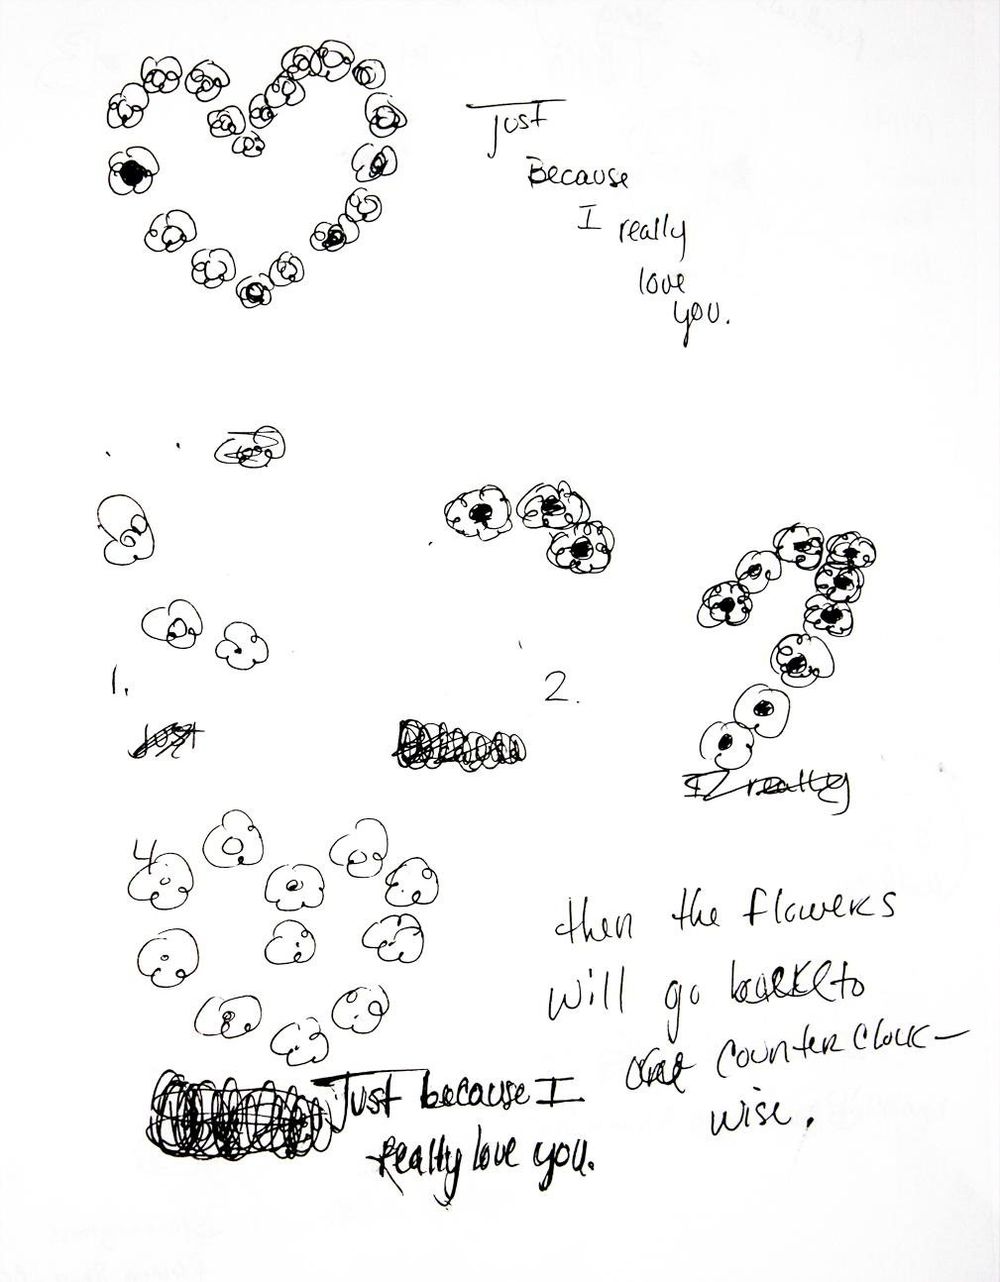 Just
Because
I really
love
you.
1.
2.
Just
I really
4
then the flowers
will go to
one counterclock-
wise.
Just because I
really love you.